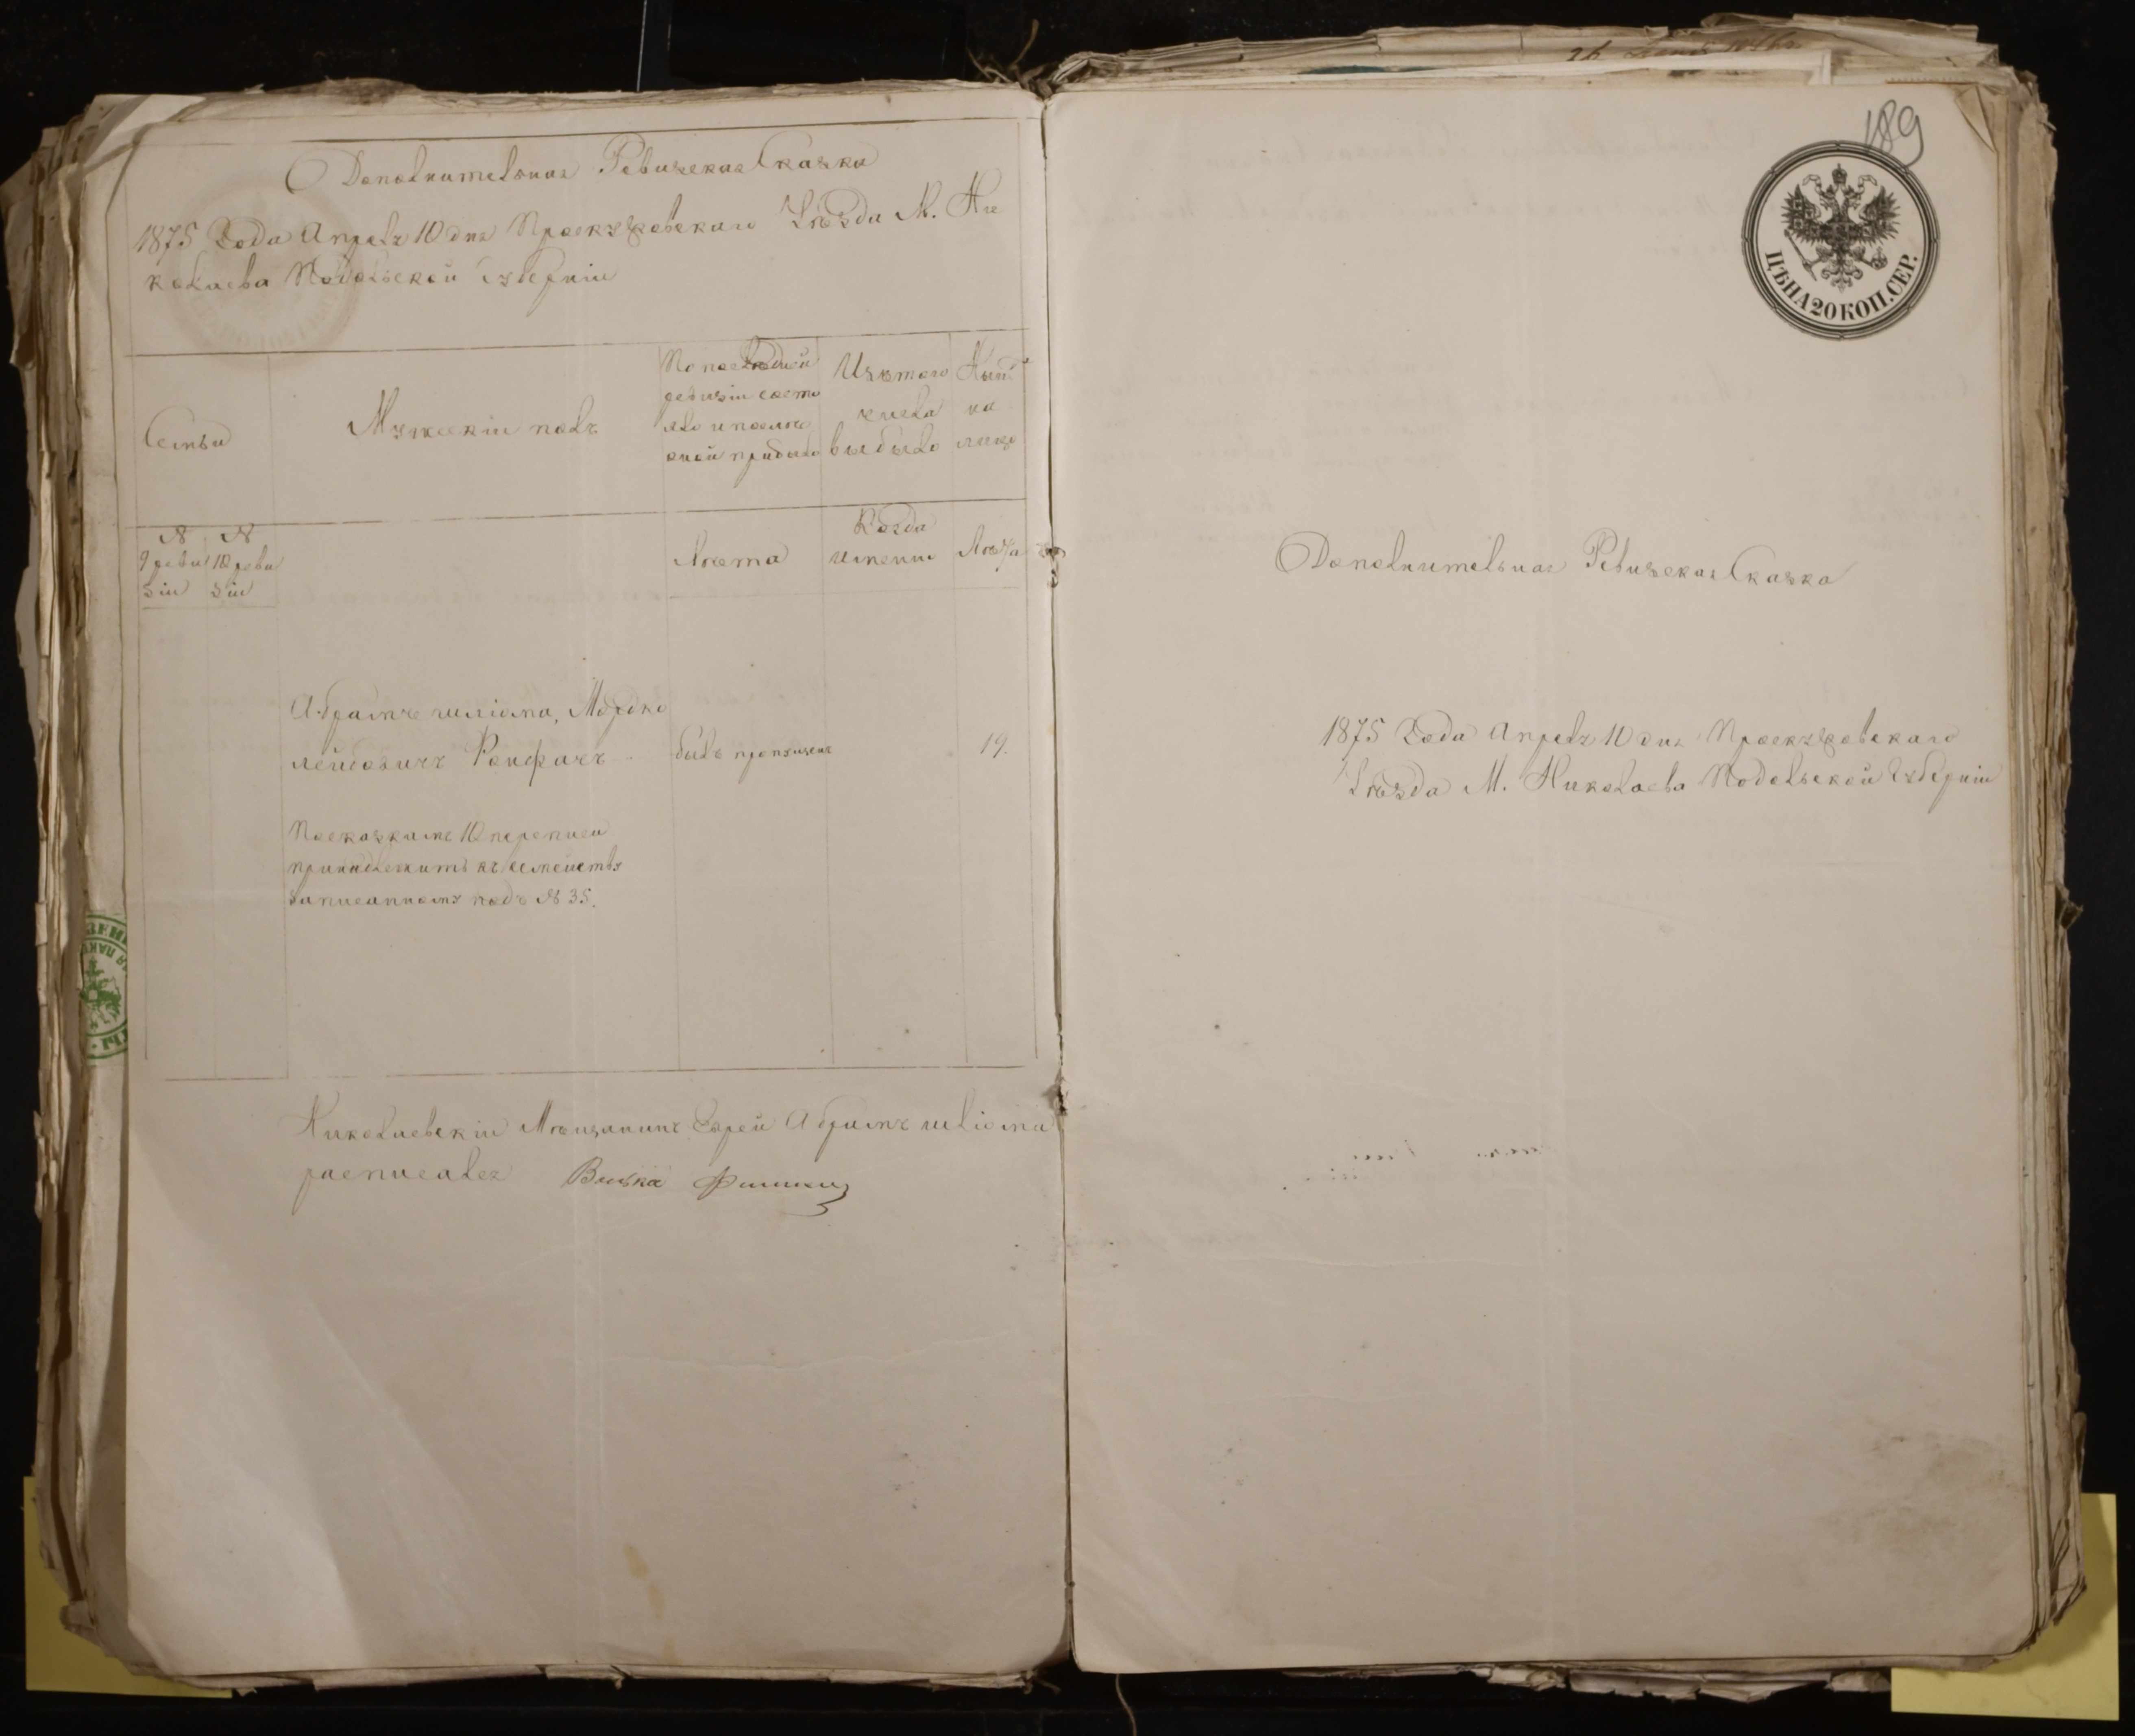 Дополнительная Ревизская Сказка
1875 Года Апреля 10 дня Проскуровскаго Уезда М. Ни
колаева Подольской Губерніи
Семьи
Мужескій полъ
По последней
ревизіи состо
яло и после
оной прибыло
Изъ того
числа
выбыло
Ныне
на
лицо
№
9 реви
зіи
№
10 реви
зіи
Лета
Когда
именно
Лета
Абрамъ шліома, Мордко
лейбовичъ
былъ пропущенъ
19.
По сказкаме 10 переписи
принадлежитъ къ семейству
записанному подъ № 35.
Николаевскій Мещанинъ Еврей Абрамъ шліома
росписался
189
ЦѢНА 20 КОП. СЕР.
Дополнительная Ревизская Сказка
1875 Года Апреля 10 дня Проскуровскаго
Уезда М. Николаева Подольской Губерніи